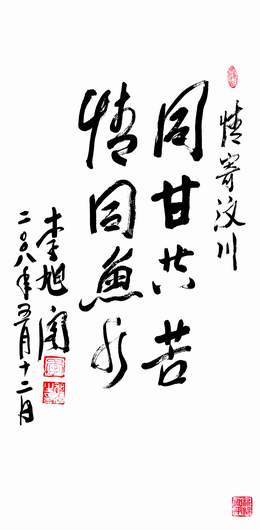 情寄汶川
同甘共苦
情同鱼水
李旭阁
二〇〇八年五月十二日